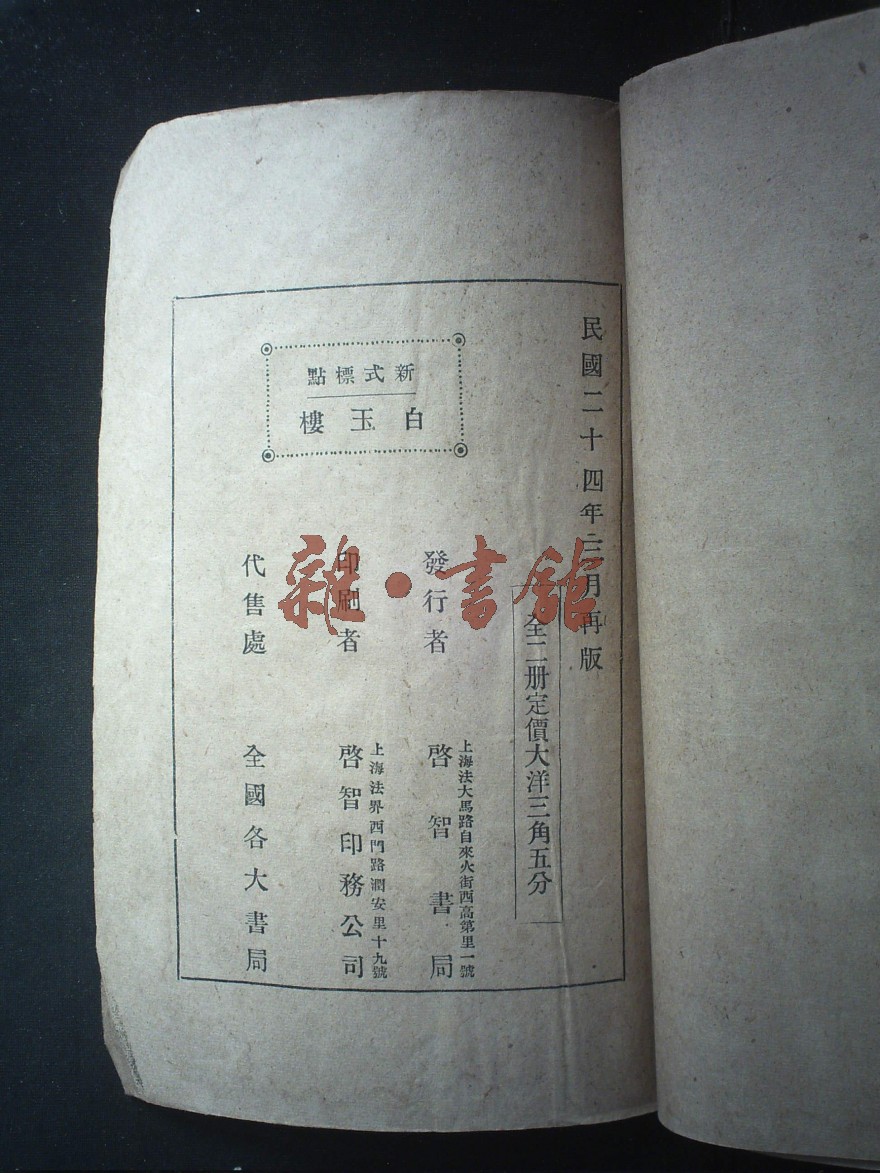 民國二十四年三月再版
全二册定價大洋三角五分
新式標點
白玉樓
發行者
上海法大馬路自來火街西高第里一號
啓智書局
印刷者
上海法界西門路潤安里十九號
啓智印務公司
代售處
全國各大書局
雜·書館